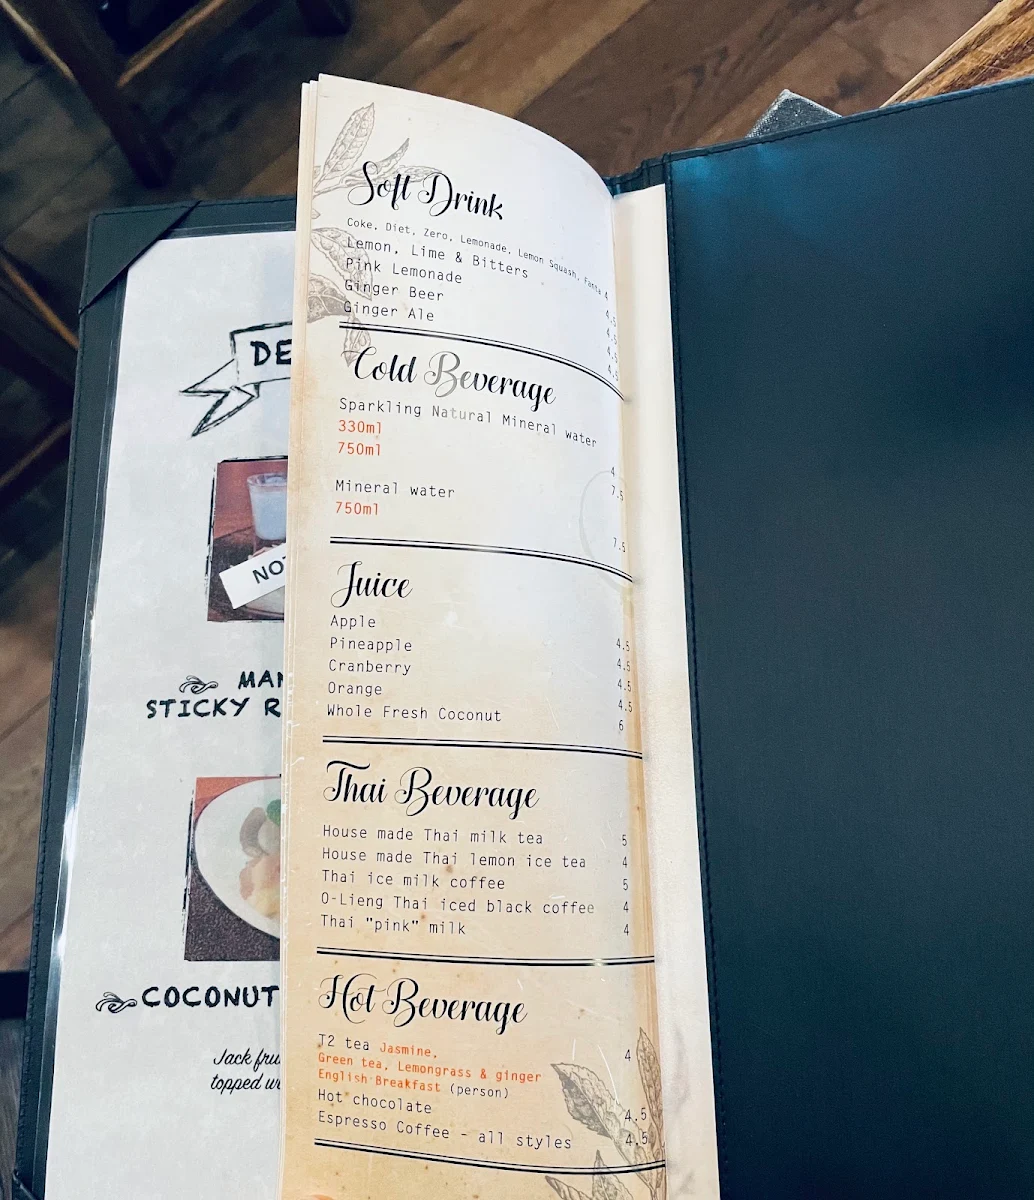 Soft Drink
Coke, Diet, Zero, Lemonade, Lemon Squash, Fanta 4
Lemon, Lime & Bitters 4.5
Pink Lemonade 4.5
Ginger Beer 4.5
Ginger Ale 4.5
Cold Beverage
Sparkling Natural Mineral water
330ml 4
750ml 7.5
Mineral water
750ml 7.5
Juice
Apple 4.5
Pineapple 4.5
Cranberry 4.5
Orange 4.5
Whole Fresh Coconut 6
Thai Beverage
House made Thai milk tea 5
House made Thai lemon ice tea 4
Thai ice milk coffee 5
O-Lieng Thai iced black coffee 4
Thai "pink" milk 4
Hot Beverage
T2 tea Jasmine, 4
Green tea, Lemongrass & ginger
English Breakfast (person)
Hot chocolate 4.5
Espresso Coffee - all styles 4.5
DE
NO
MAN
STICKY R
COCONUT
Jack fru
topped w